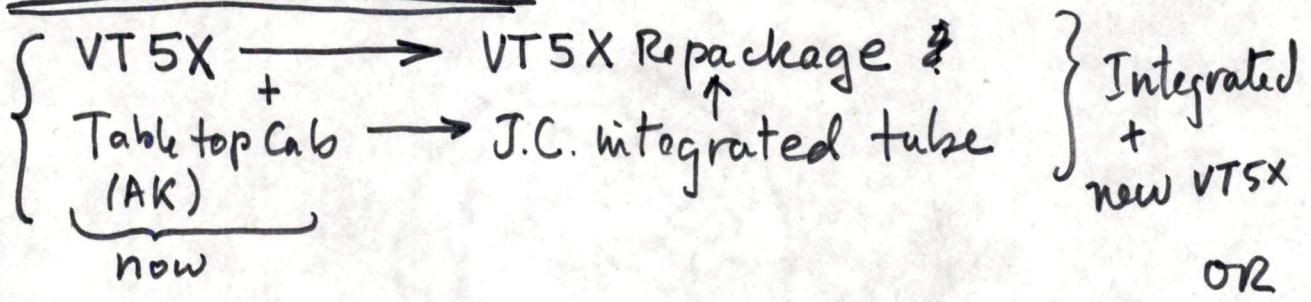 VT5X → VT5X Repackage
+
Tabletop Cab → J.C. integrated tube
(AK)
now
Integrated
+
new VT5X
OR